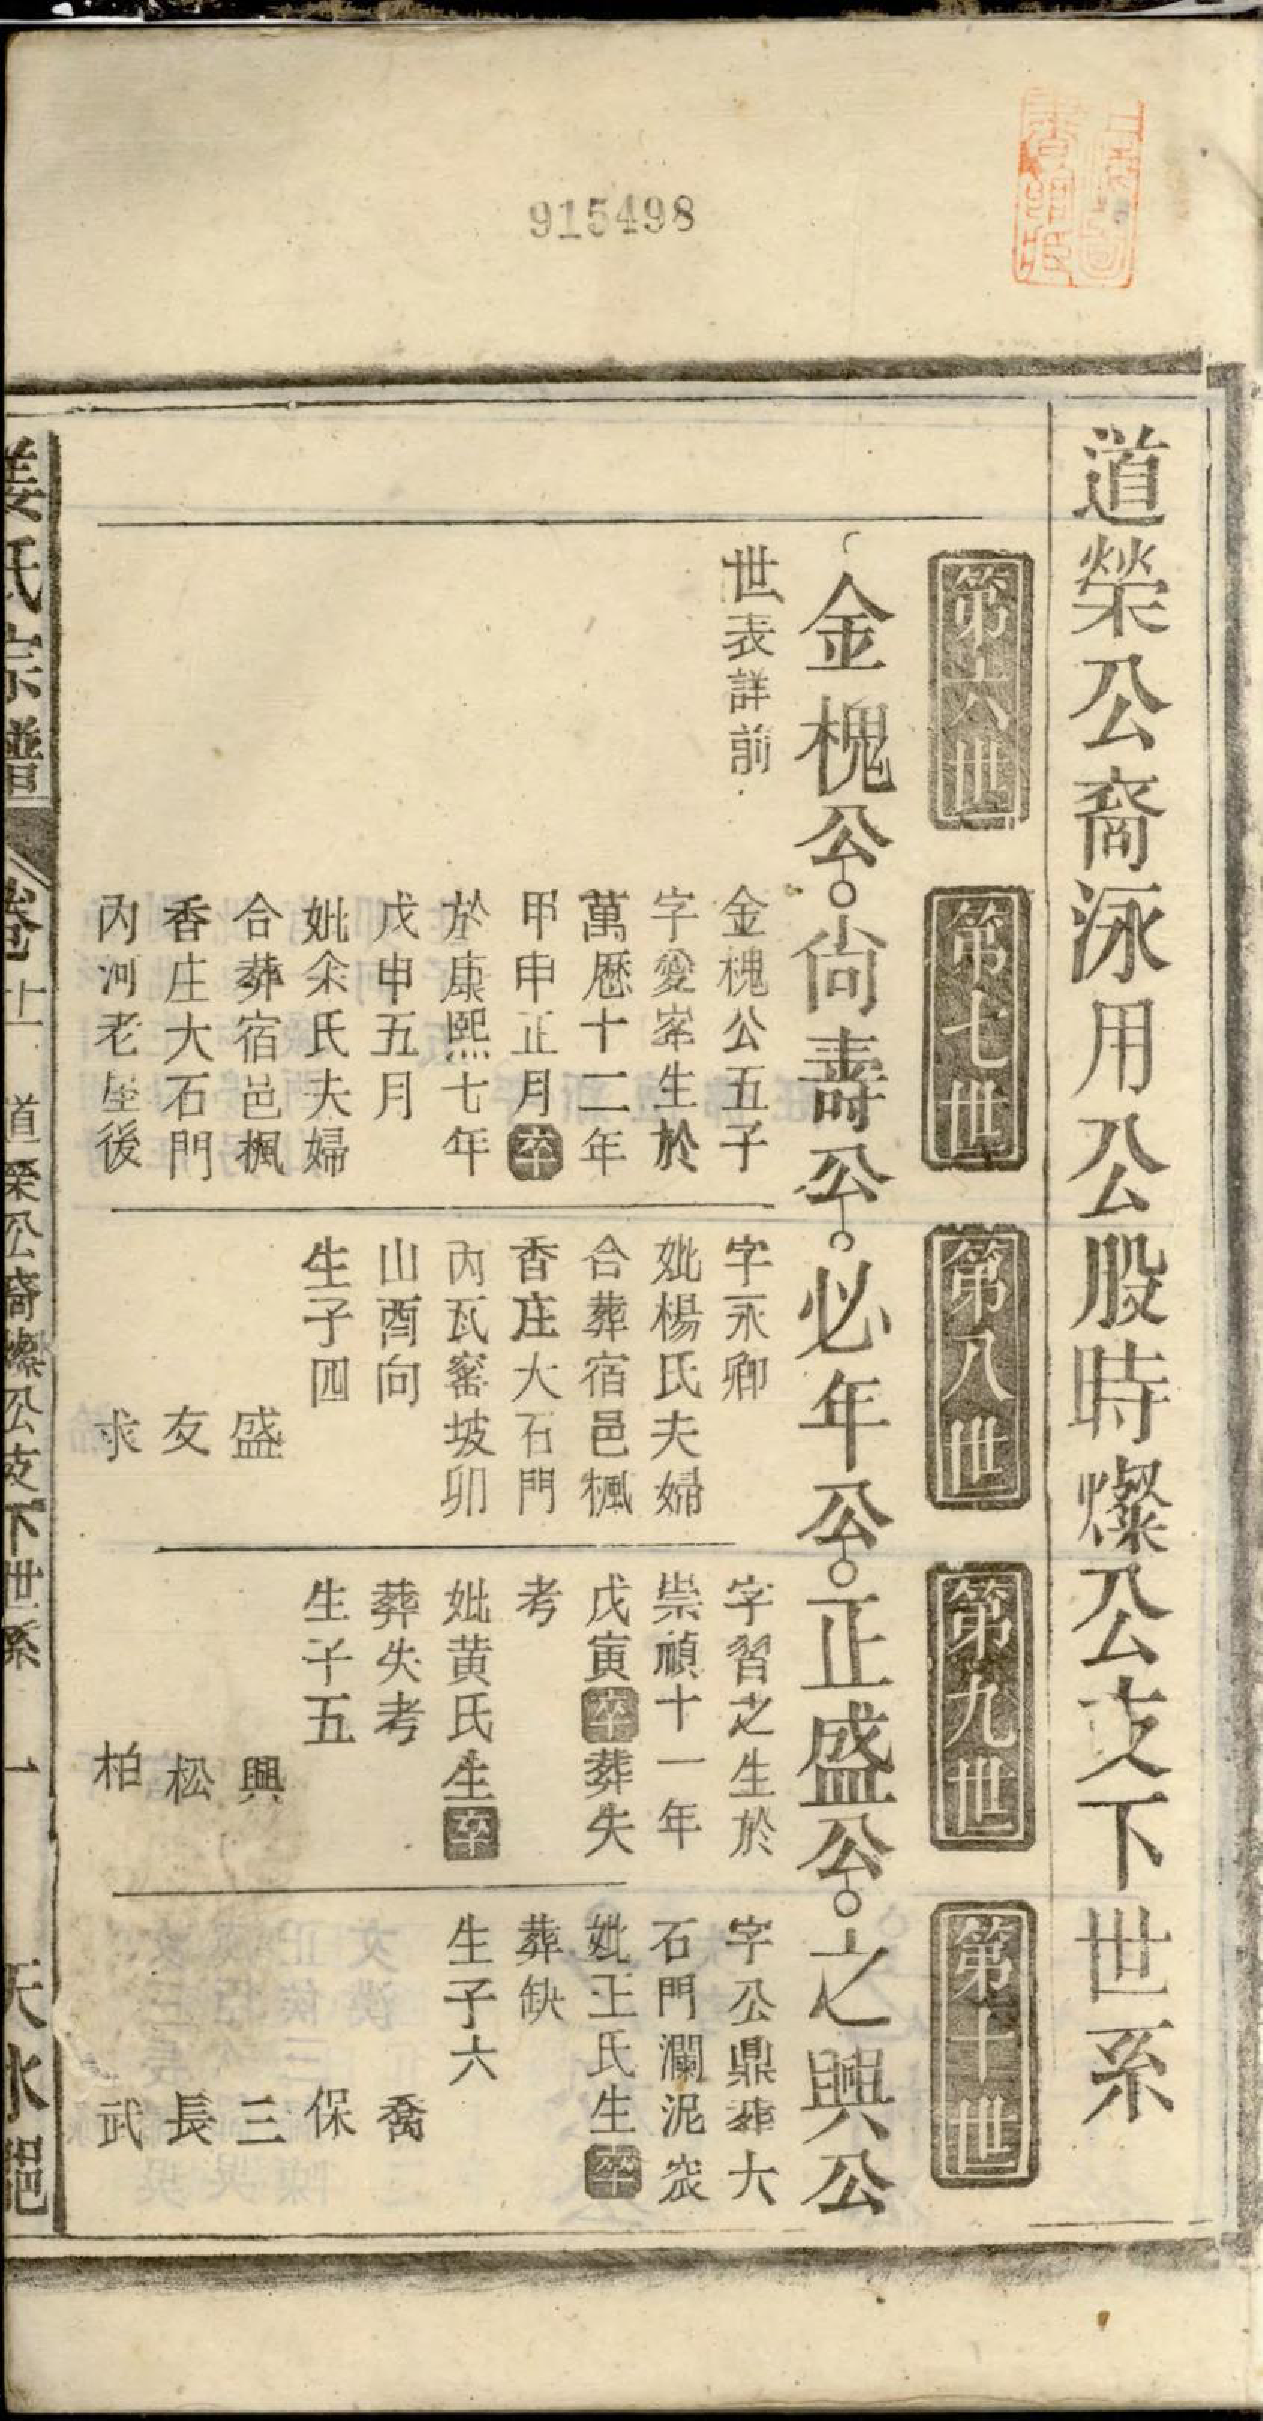 915498
道榮公裔泳用公股時燦公支下世系
第六世
第七世
第八世
第九世
第十世
金槐公尙壽公必年公正盛公之興公
世表詳前
金槐公五子
字愛峯生於
萬歷十二年
甲申正月卒
於康熙七年
戊申五月
妣氽氏夫婦
合葬宿邑楓
香庄大石門
內河老屋後
字永卿
妣楊氏夫婦
合葬宿邑楓
香庄大石門
內瓦窰坡卯
山酉向
生子四
盛
友
求
字習之生於
崇禎十一年
戊寅卒葬失
考
妣黄氏生卒
葬失考
生子五
興
松
柏
字公鼎葬大
石門瀾泥衮
妣王氏生卒
葬缺
生子六
喬
保
三
長
武
姜氏宗譜
卷十一
道榮公裔燦公支下世系
一
天水